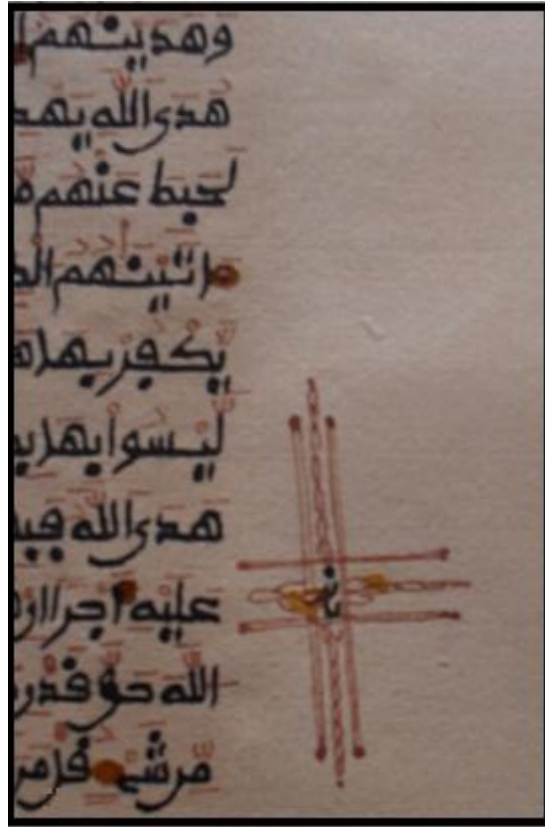 وهدينهم
هدى الله يهد
لحبط عنهم م
اتينهم الك
يكفر بها ه
ليسوا بها ب
هدى الله فبه
عليه اجرا ان
الله حق قدر
من شيء قل من